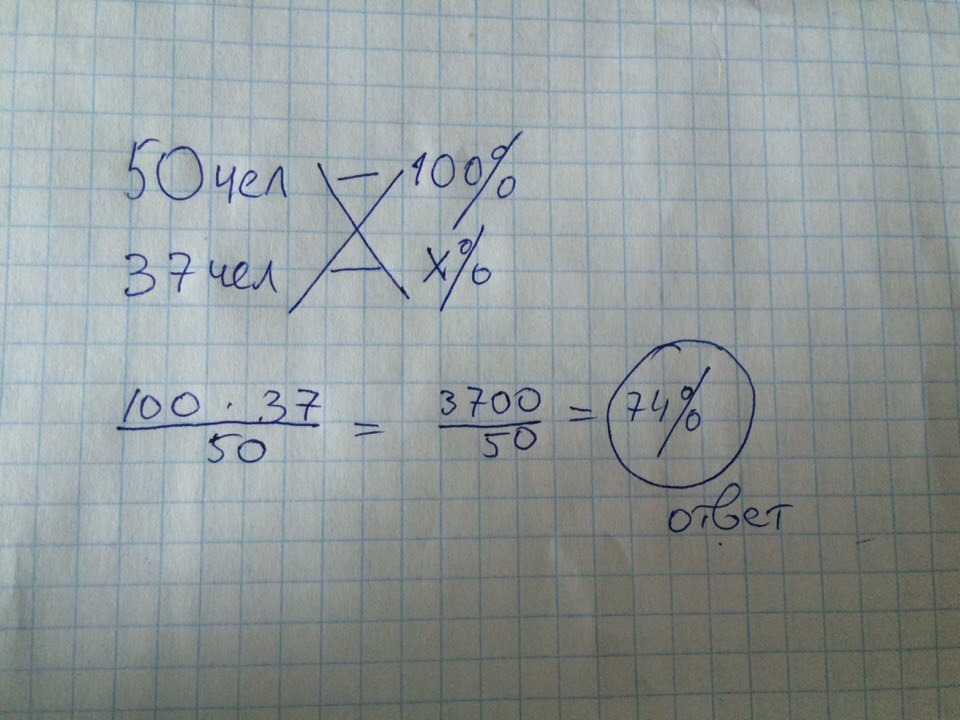 50 чел — 100%
37 чел — x%
100 · 37 / 50 = 3700 / 50 = 74%
ответ